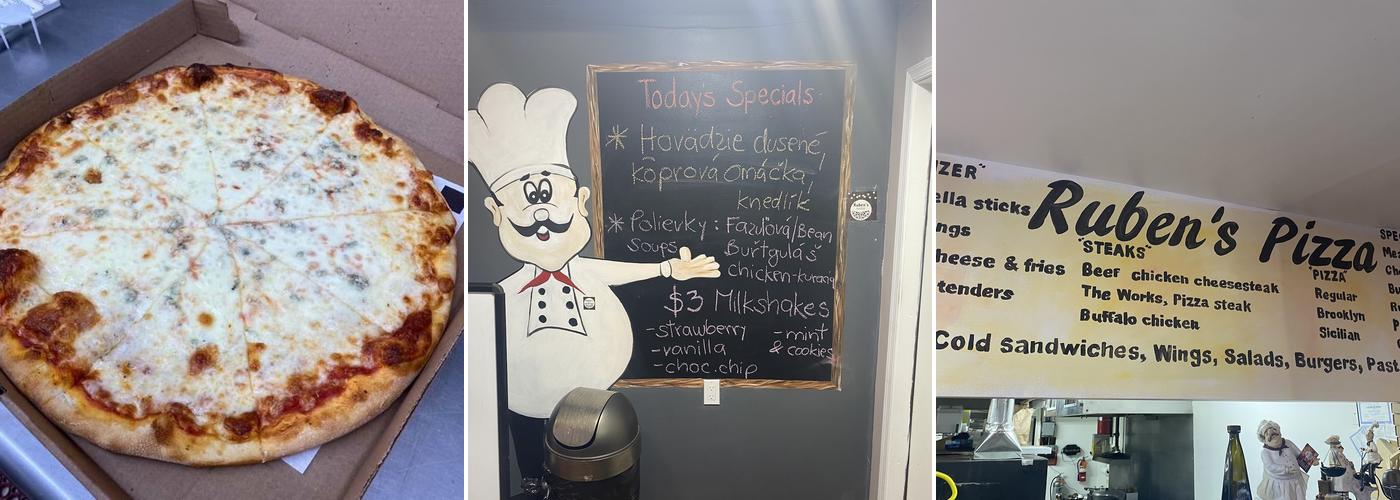 Today's Specials
* Hovädzie dusené,
kôprová omáčka,
knedlík
* Polievky: Fazuľová/Bean
soups
Buřtguláš
chicken-kuracia
$3 Milkshakes
-strawberry
-vanilla
-choc.chip
-mint
& cookies
Ruben's
ZER"
ella sticks
ngs
heese & fries
tenders
Ruben's Pizza
"STEAKS"
Beef chicken cheesesteak
The Works, Pizza steak
Buffalo chicken
"PIZZA"
Regular
Brooklyn
Sicilian
SPE
Cold sandwiches, Wings, Salads, Burgers, Past